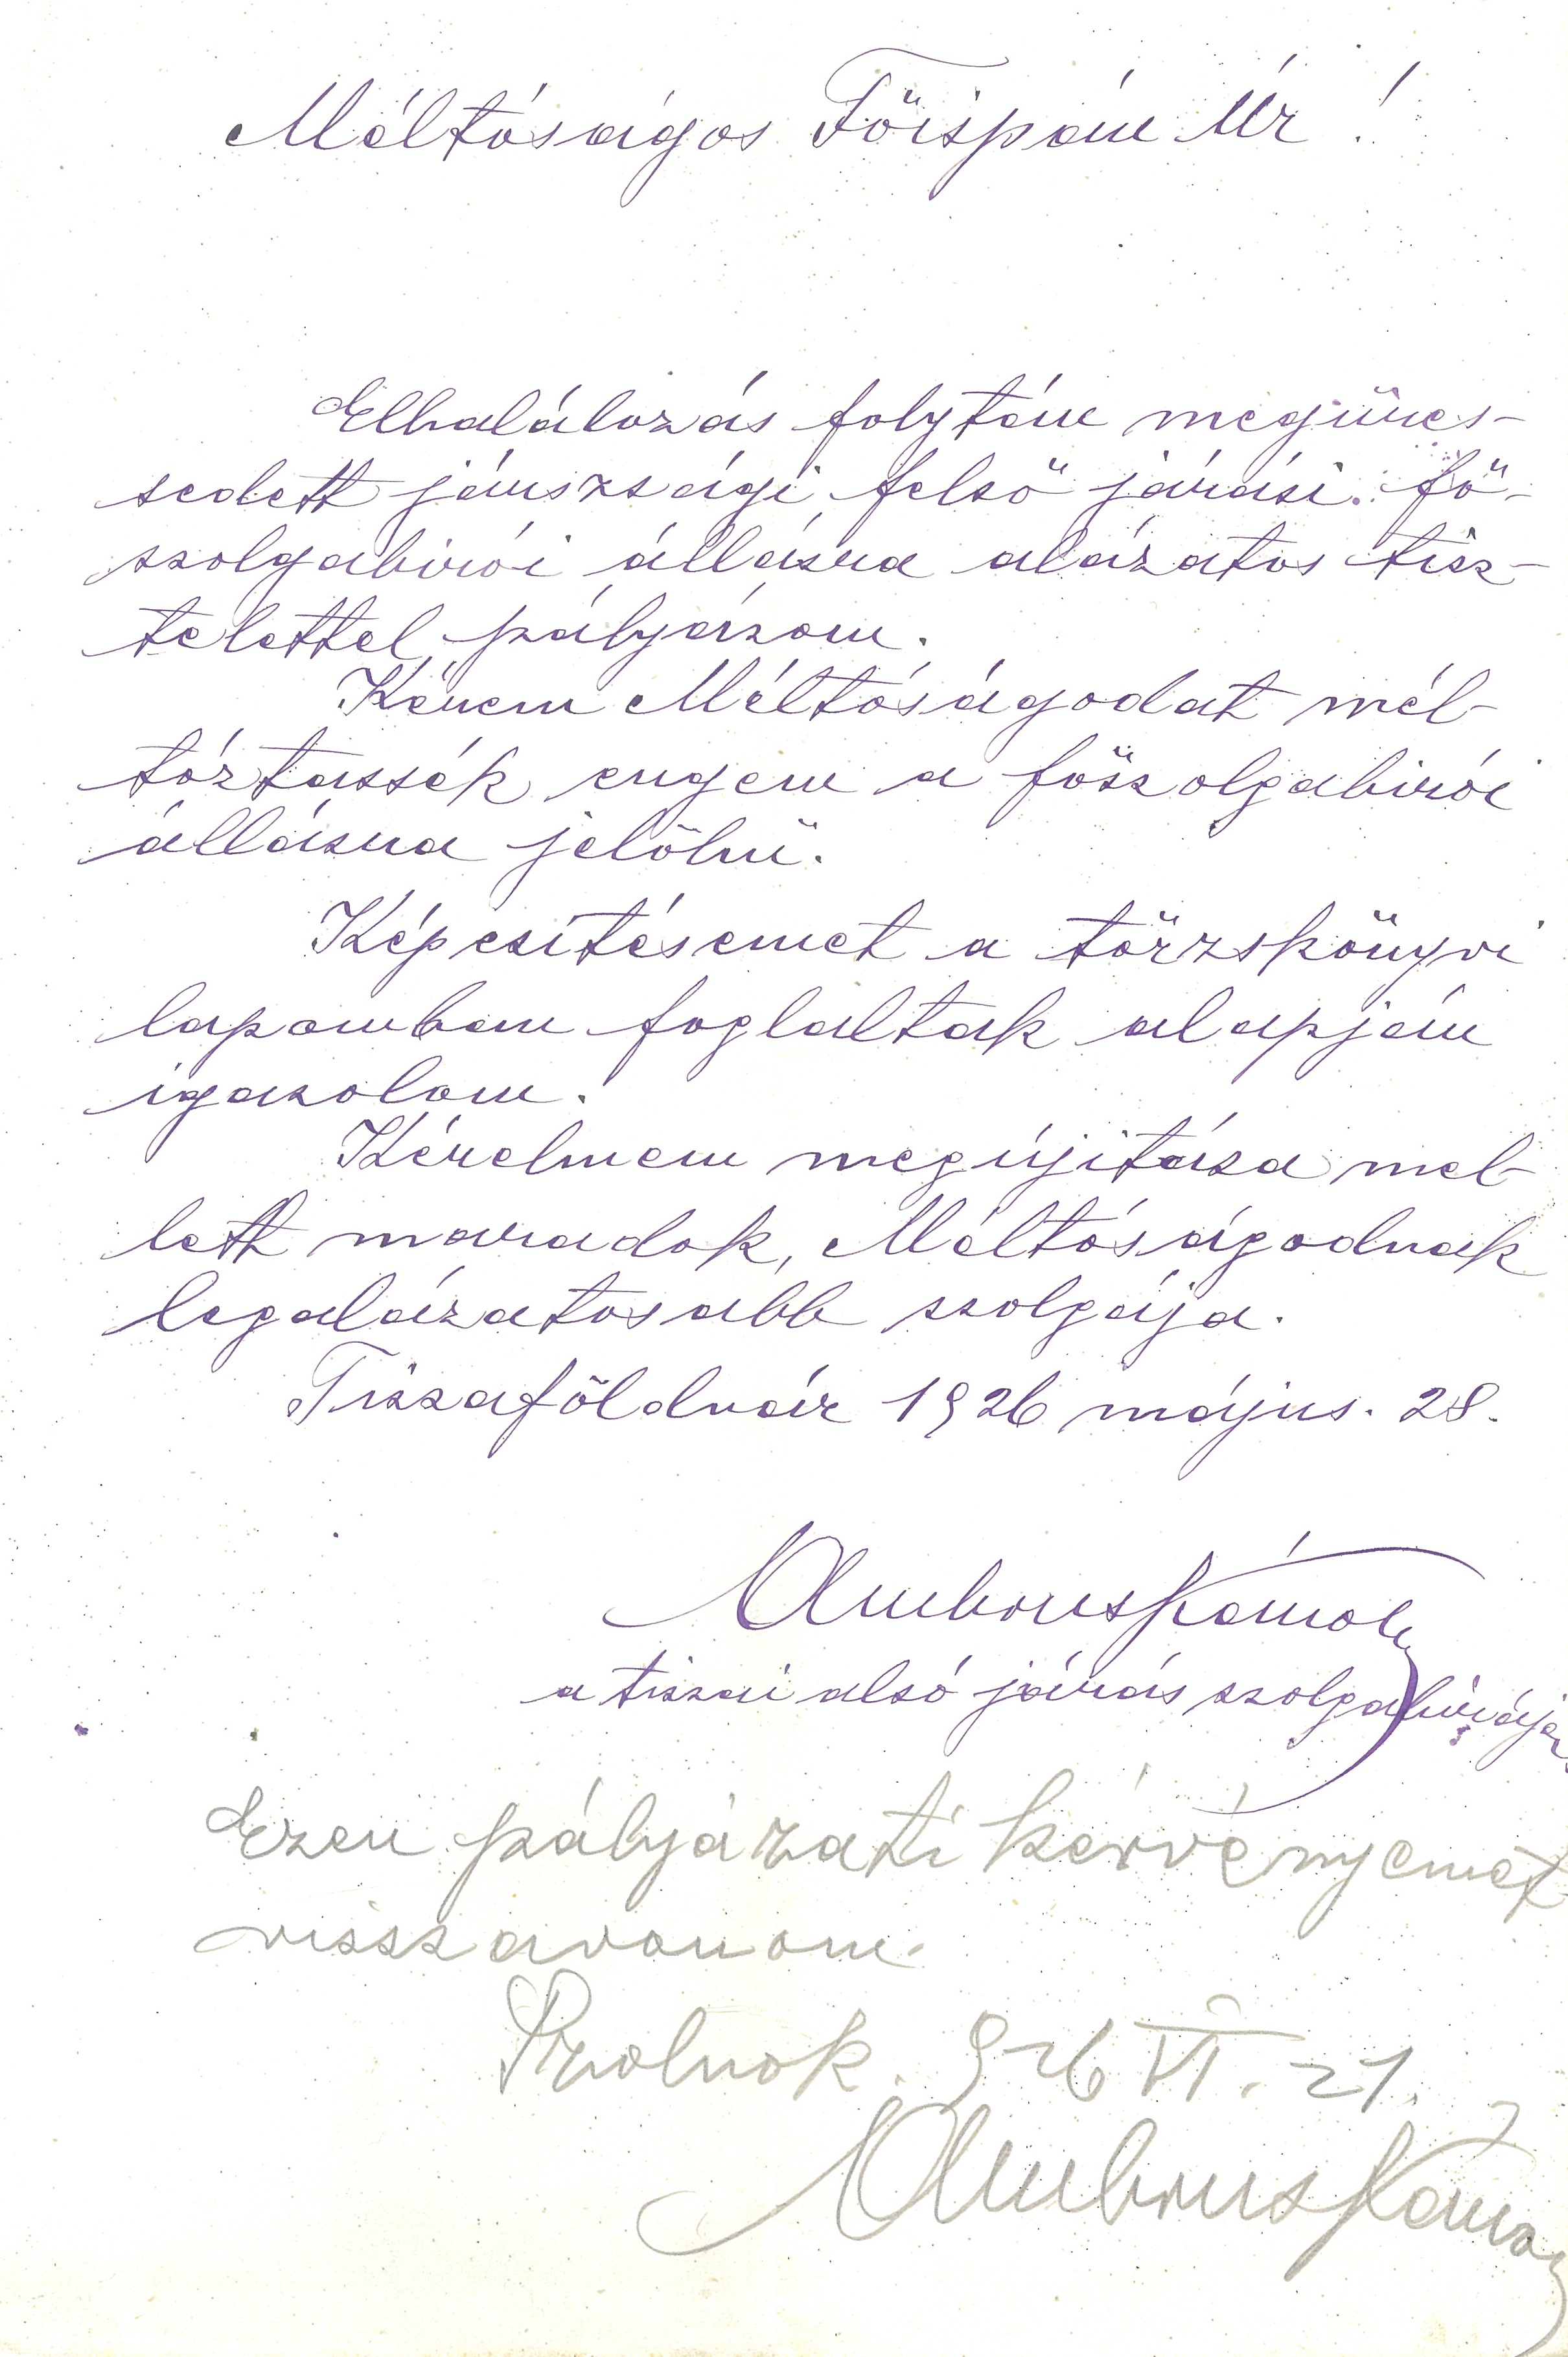 Méltóságos Főispán Úr!
Elhalálozás folytán megüres-
sedett jászsági felső járási fő-
szolgabirói állásra alázatos tisz-
telettel pályázom.
Kérem Méltóságodat mél-
tóztassék engem a főszolgabirói
állásra jelölni.
Képesítésemet a törzskönyvi
lapomban foglaltak alapján
igazolom.
Kérelmem megújitása mel-
lett maradok, Méltóságodnak
legalázatosabb szolgája.
Tiszaföldvár 1926 május. 28.
Ambrus Károly
a tiszai alsó járás szolgabirája
Ezen pályázati kérvényemet
visszavonom.
Szolnok. 926 VI. 21.
Ambrus Károly